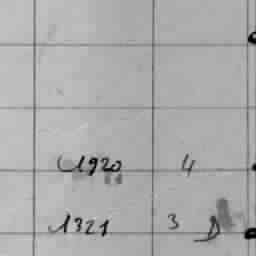 1920 4
1321 3 D